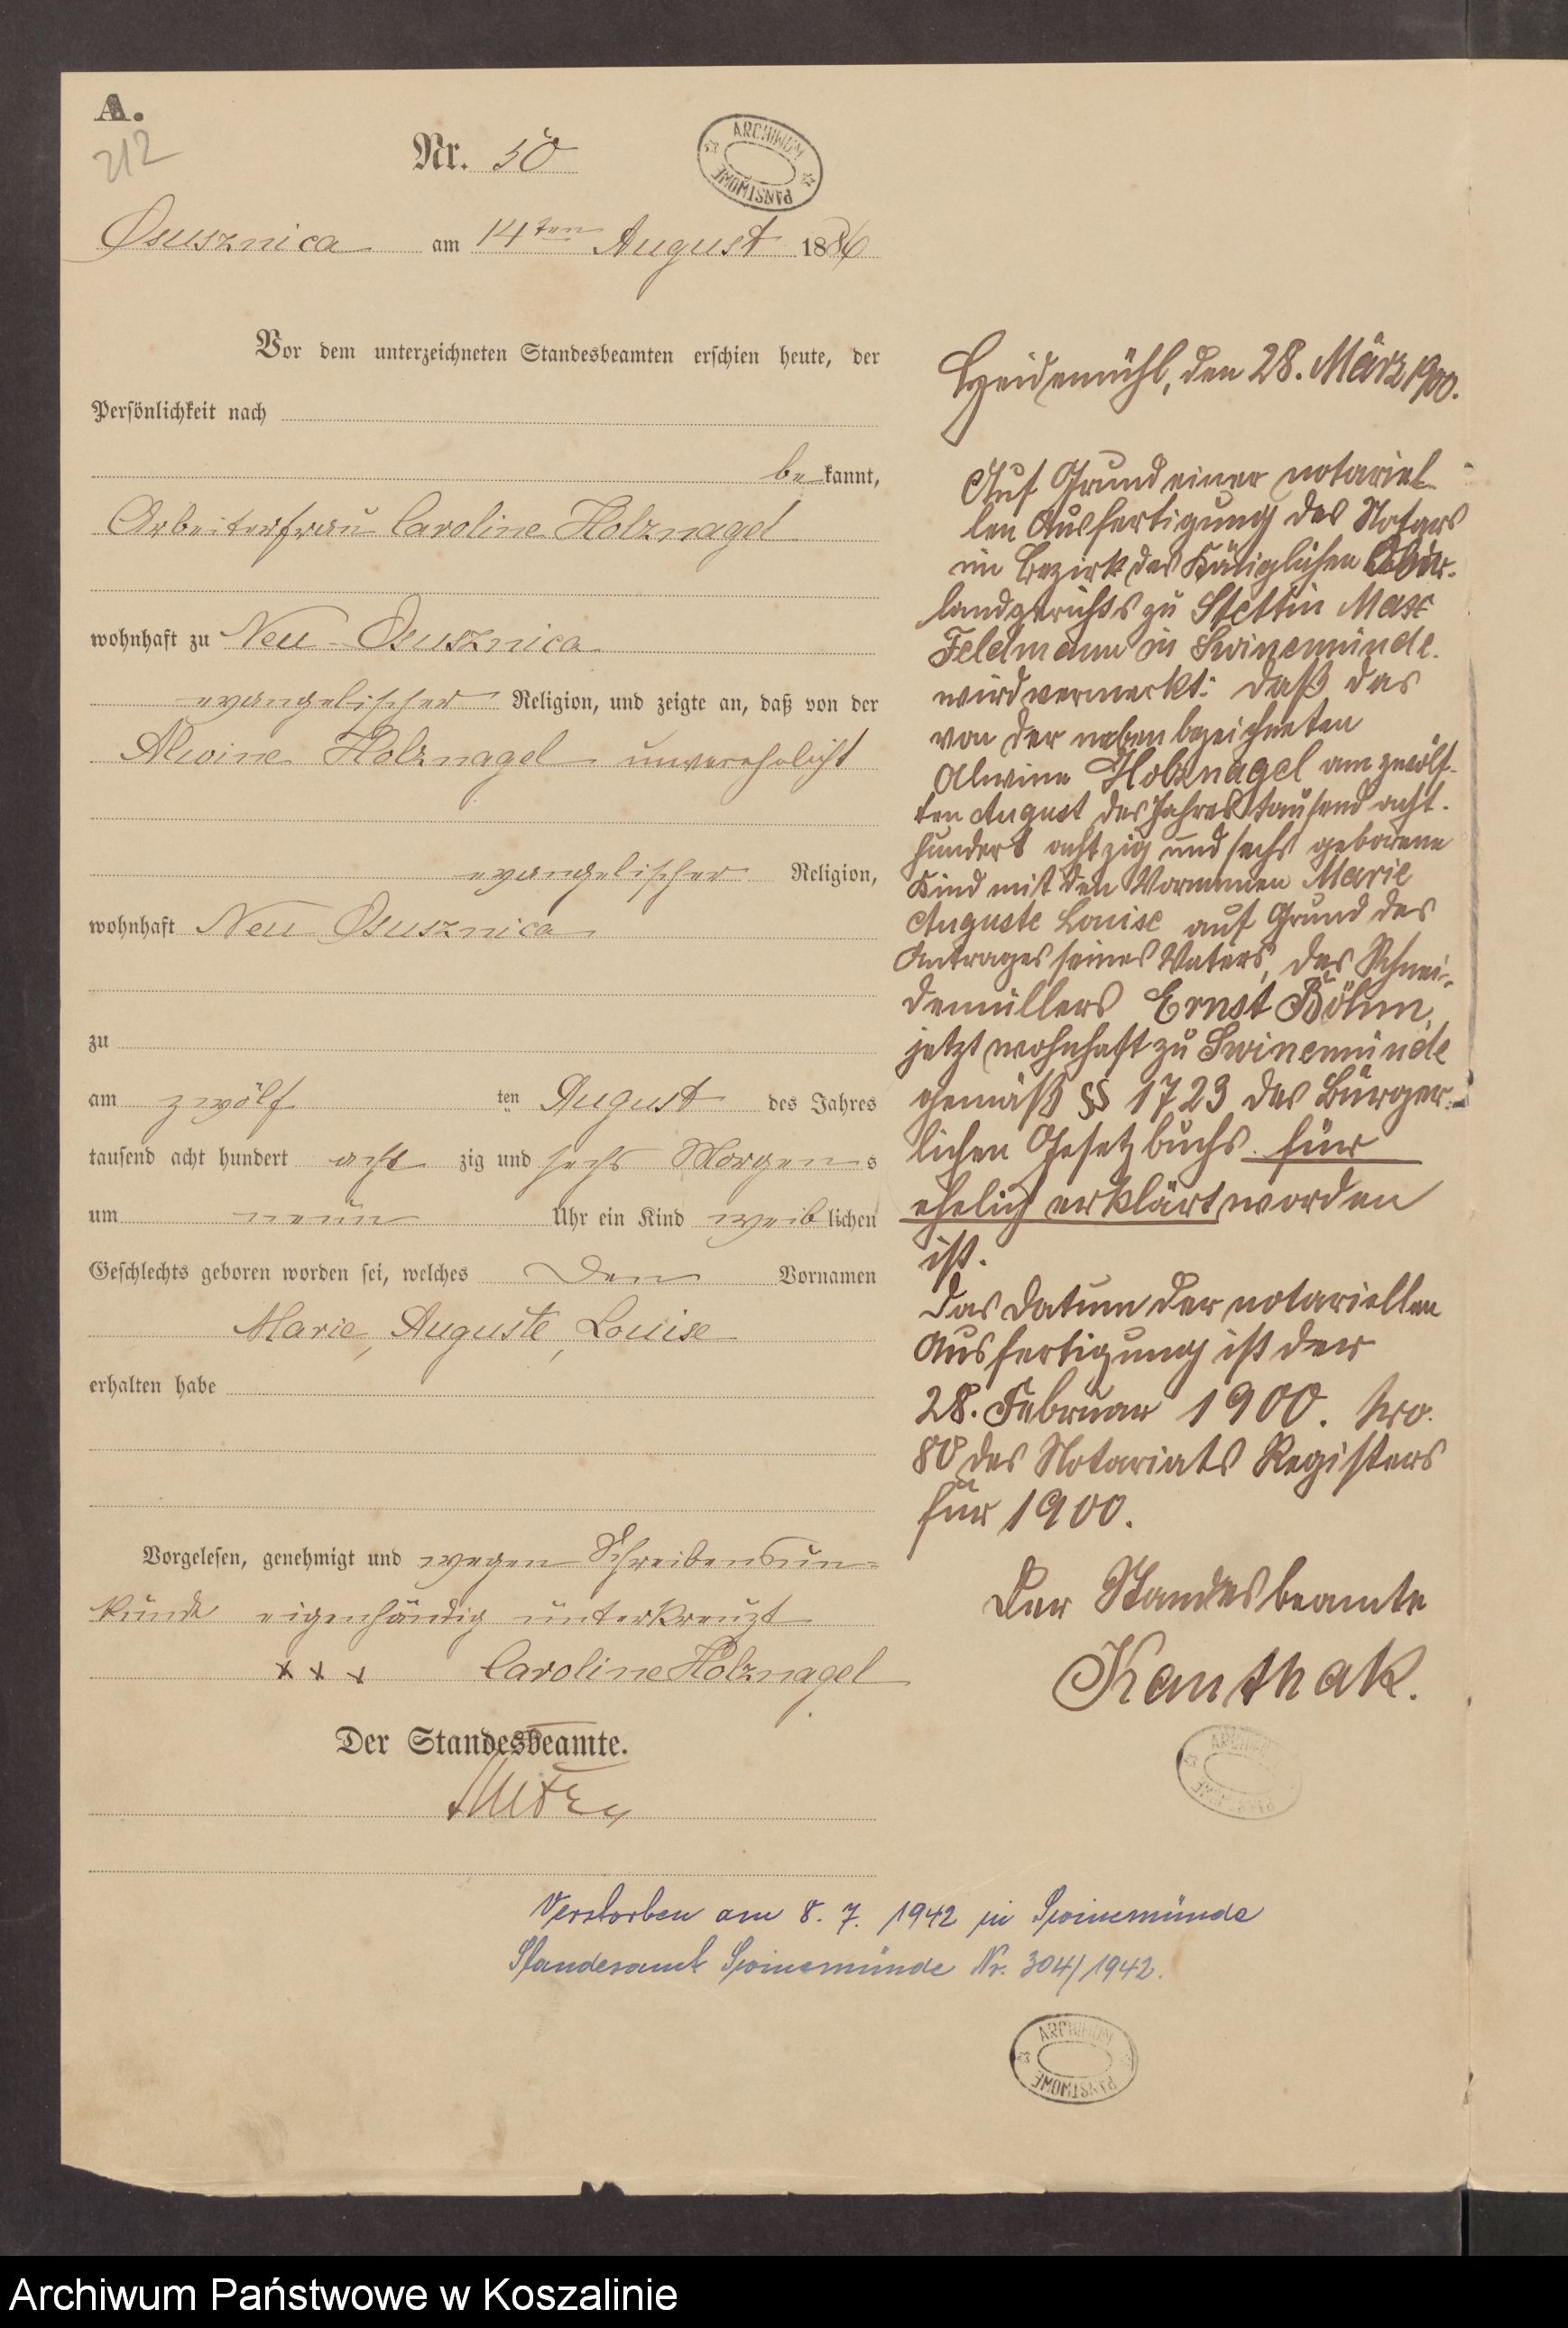 A.
212
Nr. 50
ARCHIWUM PAŃSTWOWE
Osusznica am 14ten August 1886
Vor dem unterzeichneten Standesbeamten erschien heute, der
Persönlichkeit nach
be kannt,
Arbeiterfrau Caroline Holznagel
wohnhaft zu Neu-Osusznica
evangelischer Religion, und zeigte an, daß von der
Alwine Holznagel unverehelicht
evangelischer Religion,
wohnhaft Neu Osusznica
zu
am zwölf ten August des Jahres
tausend acht hundert acht zig und sechs Morgens
um neun Uhr ein Kind weiblichen
Geschlechts geboren worden sei, welches den Vornamen
Marie, Auguste, Louise
erhalten habe
Vorgelesen, genehmigt und wegen Schreibensun-
kunde eigenhändig unterkreuzt
x x x Caroline Holznagel
Der Standesbeamte.
Heidemühl, den 28. März 1900.
Auf Grund einer notariel-
len Ausfertigung des Notars
im Bezirk des Königlichen Ober-
landgerichts zu Stettin Max
Feldmann in Swinemünde.
wird vermerkt: daß das
von der nebenbezeichneten
Alwine Holznagel am zwölf-
ten August des Jahres tausend acht-
hundert achtzig und sechs geborene
Kind mit den Vornamen Marie
Auguste Louise auf Grund des
Antrages seines Vaters, des Schnei-
demüllers Ernst Böhm,
jetzt wohnhaft zu Swinemünde
gemäß §§ 1723 des Bürger-
lichen Gesetzbuchs für
ehelich erklärt worden
ist.
Das Datum der notariellen
Ausfertigung ist der
28. Februar 1900. Nro.
80 des Notariats Registers
für 1900.
Der Standesbeamte
Kanthak.
ARCHIWUM PAŃSTWOWE
Verstorben am 8. 7. 1942 in Swinemünde
Standesamt Swinemünde Nr. 304/1942.
ARCHIWUM PAŃSTWOWE
Archiwum Państwowe w Koszalinie